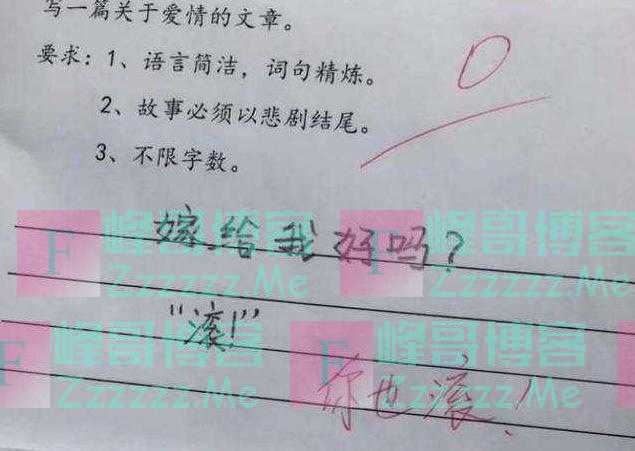 写一篇关于爱情的文章。
要求：1、语言简洁，词句精炼。
2、故事必须以悲剧结尾。
3、不限字数。
0
嫁给我好吗？
“滚！”
你也滚！
F 峰哥博客 Zzzzzz.Me
F 峰哥博客 Zzzzzz.Me
F 峰哥博客 Zzzzzz.Me
F 峰哥博客 Zzzzzz.Me